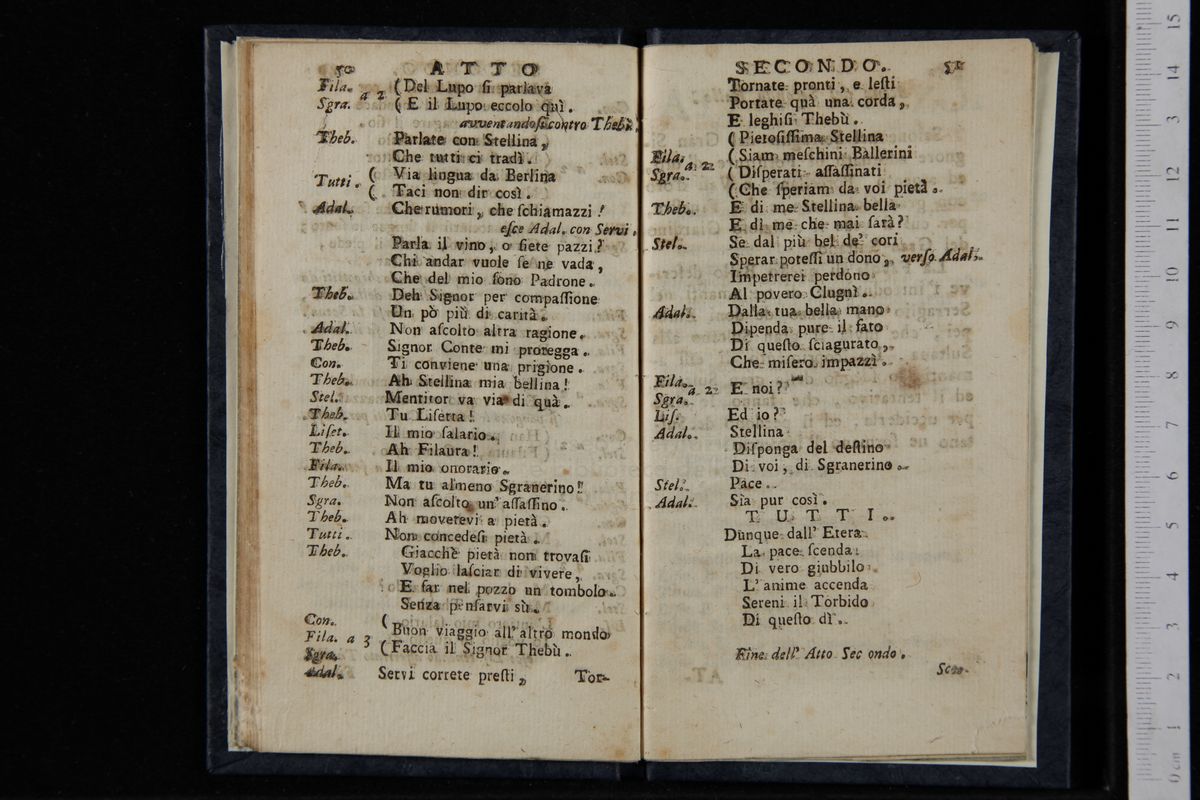 50 ATTO
Fila. a 2 (Del Lupo ſi parlava
Sgra. (E il Lupo eccolo quì.
avventandoſi contro Thebù.
Theb. Parlate con Stellina,
Che tutti ci tradì.
Tutti. (Via lingua da Berlina
(Taci non dir così.
Adal. Che rumori, che ſchiamazzi!
eſce Adal. con Servi.
Parla il vino, o ſiete pazzi?
Chi andar vuole ſe ne vada,
Che del mio ſono Padrone.
Theb. Deh Signor per compaſſione
Un pò più di carità.
Adal. Non aſcolto altra ragione.
Theb. Signor Conte mi protegga.
Con. Ti conviene una prigione.
Theb. Ah Stellina mia bellina!
Stel. Mentitor va via di quà.
Theb. Tu Liſetta!
Liſet. Il mio ſalario.
Theb. Ah Filaura!
Fila. Il mio onorario.
Theb. Ma tu almeno Sgranerino!
Sgra. Non aſcolto un' aſſaſſino.
Theb. Ah movetevi a pietà.
Tutti. Non concedeſi pietà.
Theb. Giacchè pietà non trovaſi
Voglio laſciar di vivere,
E far nel pozzo un tombolo.
Senza penſarvi sù.
Con. (
Fila. a 3 Buon viaggio all' altro mondo
Sgra. (Faccia il Signor Thebù.
Adal. Servi correte preſti, Tor-
SECONDO. 51
Tornate pronti, e leſti
Portate quà una corda,
E leghiſi Thebù.
(Pietoſiſſima Stellina
Fila. a 2 (Siam meſchini Ballerini
Sgra. (Diſperati aſſaſſinati
(Che ſperiam da voi pietà.
Theb. E di me Stellina bella
E di me che mai ſarà?
Stel. Se dal più bel de' cori
Sperar poteſſi un dono, verſo Adal.
Impetrerei perdono
Al povero Clugnì.
Adal. Dalla tua bella mano
Dipenda pure il fato
Di queſto ſciagurato,
Che miſero impazzì.
Fila. a 2 E noi?
Sgra.
Liſ. Ed io?
Adal. Stellina
Diſponga del deſtino
Di voi, di Sgranerino.
Stel. Pace.
Adal. Sia pur così.
TUTTI.
Dunque dall' Etera
La pace ſcenda
Di vero giubbilo
L' anime accenda
Sereni il Torbido
Di queſto dì.
Fine dell' Atto Sec ondo.